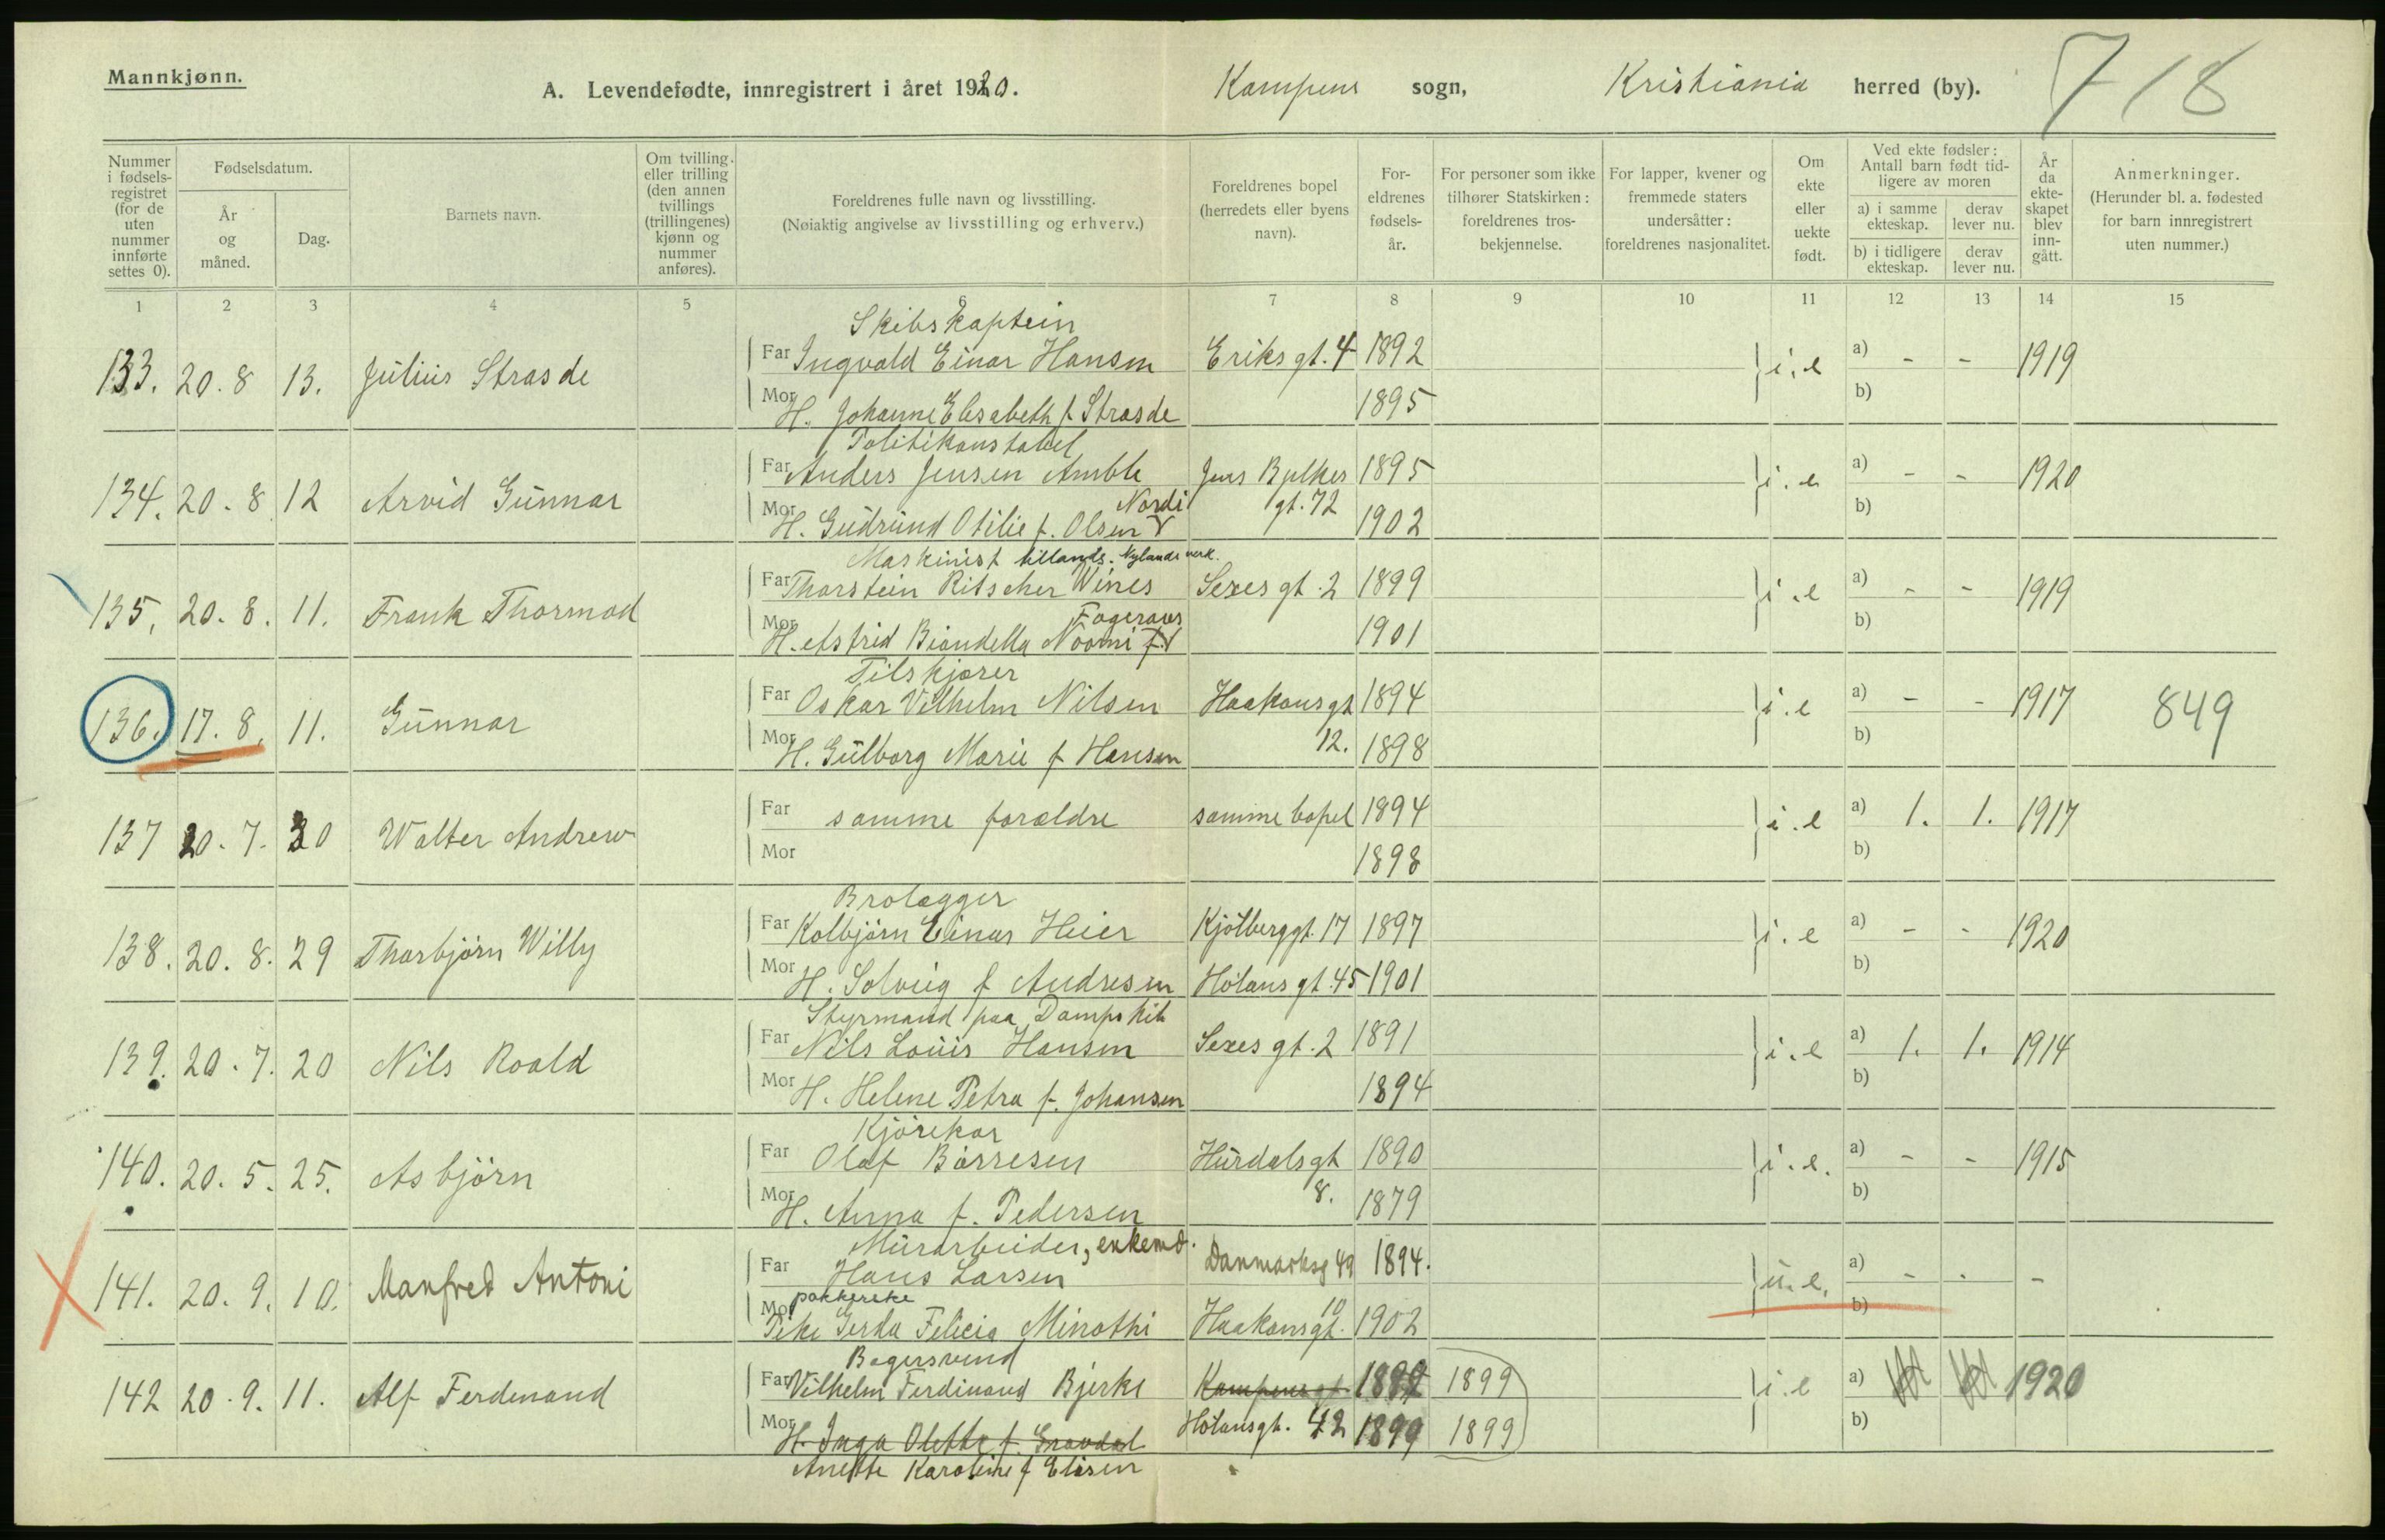 Mannkjønn.
A. Levendefødte, innregistrert i året 1920. Kampens sogn, Kristiania herred (by). 718
Nummer i fødsels- registret (for de uten nummer innførte settes 0).
Fødselsdatum.
År og måned.
Dag.
Barnets navn.
Om tvilling- eller trilling (den annen tvillings (trillingenes) kjønn og nummer anføres).
Foreldrenes fulle navn og livsstilling.
(Nøiaktig angivelse av livsstilling og erhverv.)
Foreldrenes bopel (herredets eller byens navn).
For- eldrenes fødsels- år.
For personer som ikke tilhører Statskirken: foreldrenes tros- bekjennelse.
For lapper, kvener og fremmede staters undersåtter: foreldrenes nasjonalitet.
Om ekte eller uekte født.
Ved ekte fødsler: Antall barn født tid- ligere av moren
a) i samme ekteskap.
derav lever nu.
b) i tidligere ekteskap.
derav lever nu.
År da ekte- skapet blev inn- gått.
Anmerkninger.
(Herunder bl. a. fødested for barn innregistrert uten nummer.)
1 2 3 4 5 6 7 8 9 10 11 12 13 14 15
Skibskaptein
133. 20.8 13. Julius Strasde Far Ingvald Einar Hansen Eriks gt. 4 1892 i.e a) - - 1919
Mor H. Johanne Elisabeth f. Strasde 1895 b)
Politikonstabel
134. 20.8 12 Arvid Gunnar Far Anders Jensen Amble Jens Bjelkes 1895 i.e a) - - 1920
Nordi
Mor H. Gudrund Otilie f. Olsen gt. 72 1902 b)
Maskinist tillands. Nylands verk.
135. 20.8. 11. Frank Thormod Far Thorstein Ritscher Wines Sexes gt. 2 1899 i.e a) - - 1919
Fageraas
Mor H. Astrid Biondella Noomi f. 1901 b)
Filskjærer
136. 17.8. 11. Gunnar Far Oskar Vilhelm Nilsen Haakons gt 1894 i.e a) - - 1917 849
Mor H. Gulborg Marie f Hansen 12. 1898 b)
137 20.7. 30 Walter Andrew Far samme forældre samme bopel 1894 i.e a) 1. 1. 1917
Mor 1898 b)
Brolægger
138. 20.8. 29 Thorbjørn Willy Far Kolbjørn Einar Heier Kjølberggt. 17 1897 i.e a) - - 1920
Mor H. Solveig f Andresen Hølans gt. 45 1901 b)
Styrmand paa Dampskib
139. 20.7. 20 Nils Roald Far Nils Louis Hansen Sexes gt. 2 1891 i.e a) 1. 1. 1914
Mor H. Helene Petra f. Johansen 1894 b)
Kjørekar
140. 20.5. 25. Asbjørn Far Olaf Børresen Hurdalsgt 1890 i.e. a) - - 1915
Mor H. Anna f. Pedersen 8. 1879 b)
Murarbeider, enkemd.
141. 20.9. 10. Manfred Antoni Far Hans Larsen Danmarksg 49 1894. u.e. a) - - -
pakkerske
Mor Pike Gerda Felicia Minothi Haakonsgt. 10 1902 b)
Bagersvend
142 20.9. 11. Alf Ferdinand Far Vilhelm Ferdinand Bjerke Kampens gt 1899 1899 i.e a) 1920
Mor H. Inga Olette f. Gravdal Hølansgt. 42 1899 1899 b)
Anette Karoline f Elisen